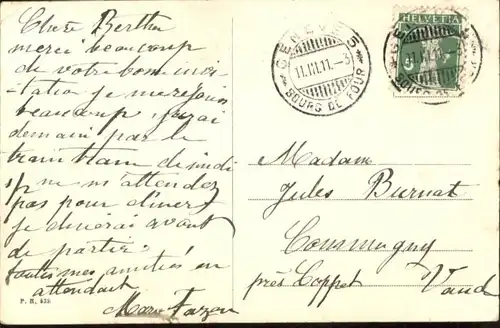 Chère Berthe
merci beaucoup
de votre bonne invi
tation je me réjouis
beaucoup j'irai
demain par le
train de midi
ne m'attendez
pas pour dîner
je dînerai avant
de partir
toutes mes amitiés en
attendant
Marie
P. H. 435
GENÈVE 5
11.III.11.-3
BOURG DE FOUR
HELVETIA
Madame
Jules Burnat
Commugny
près Coppet
Vaud